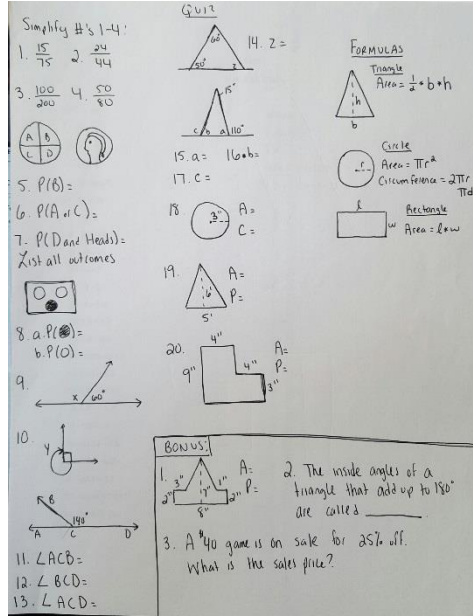 QUIZ
Simplify #'s 1-4:
1. 15/75 2. 24/44
3. 100/200 4. 50/80
A B
C D
5. P(B)=
6. P(A or C)=
7. P(D and Heads)=
List all outcomes
8. a. P(●)=
b. P(O)=
9.
x 60°
10.
y
B
140°
A C D
11. ∠ACB=
12. ∠BCD=
13. ∠ACD=
60°
50° z
14. z=
15°
c b a 110°
15. a= 16. b=
17. C=
18.
3"
A=
C=
19.
6'
5'
A=
P=
20.
4"
9"
4"
3"
A=
P=
FORMULAS
Triangle
Area = 1/2 * b * h
h
b
Circle
r
Area = πr²
Circumference = 2πr
πd
Rectangle
l
w
Area = l*w
BONUS:
1.
3"
2" 7" 2"
8"
A=
P=
2. The inside angles of a
triangle that add up to 180°
are called ________
3. A $40 game is on sale for 25% off.
What is the sales price?